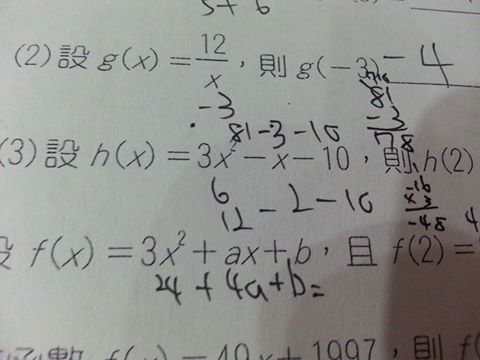 (2)設 g(x) = 12/x , 則 g(-3) -4
-3
81-3-10
(3)設 h(x) = 3x² - x - 10 , 則 h(2)
6
12 - 2 - 10
-48
設 f(x) = 3x² + ax + b , 且 f(2) =
24 + 4a+b=
f(x) = 40x + 1997 , 則 f(